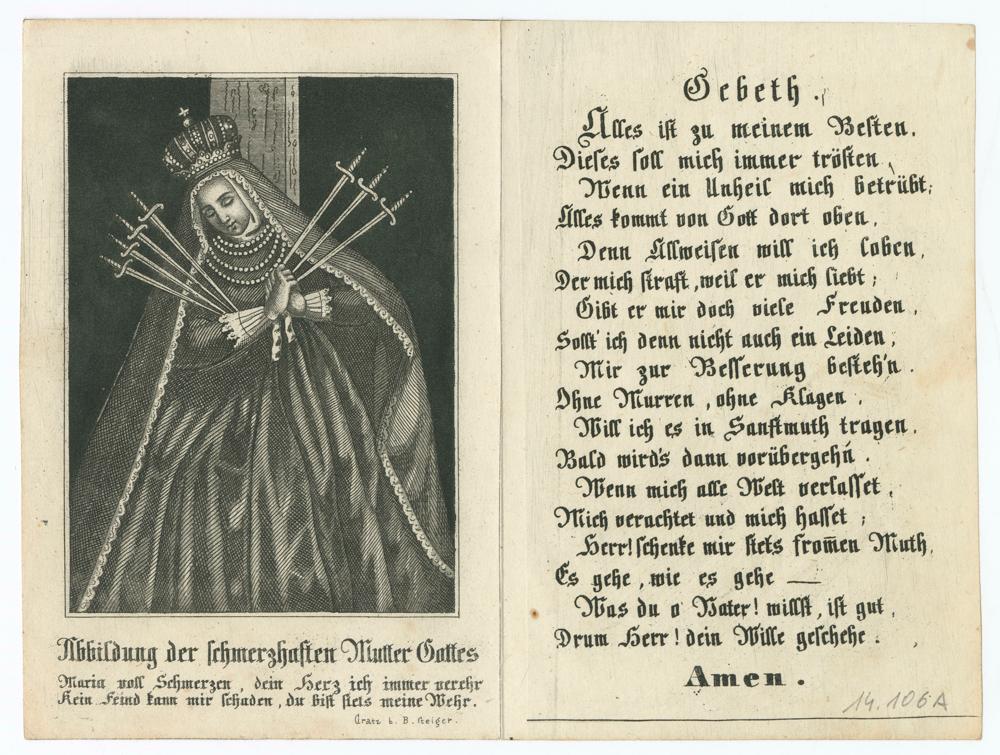 Abbildung der schmerzhaften Mutter Gottes
Maria voll Schmerzen, dein Herz ich immer verehr
Kein Feind kann mir schaden, du bist stets meine Wehr.
Gratz b. B. Geiger.
Gebeth.
Alles ist zu meinem Besten,
Dieses soll mich immer trösten,
Wenn ein Unheil mich betrübt;
Alles kommt von Gott dort oben,
Denn Allweisen will ich loben,
Der mich straft, weil er mich liebt;
Gibt er mir doch viele Freuden,
Sollt' ich denn nicht auch ein Leiden,
Mir zur Besserung besteh'n.
Ohne Murren, ohne Klagen,
Will ich es in Sanftmuth tragen,
Bald wird's dann vorübergehn'.
Wenn mich alle Welt verlasset,
Mich verachtet und mich hasset;
Herr! schenke mir stets from̄en Muth,
Es gehe, wie es gehe —
Was du o Vater! willst, ist gut,
Drum Herr! dein Wille geschehe.
Amen.
14.106A